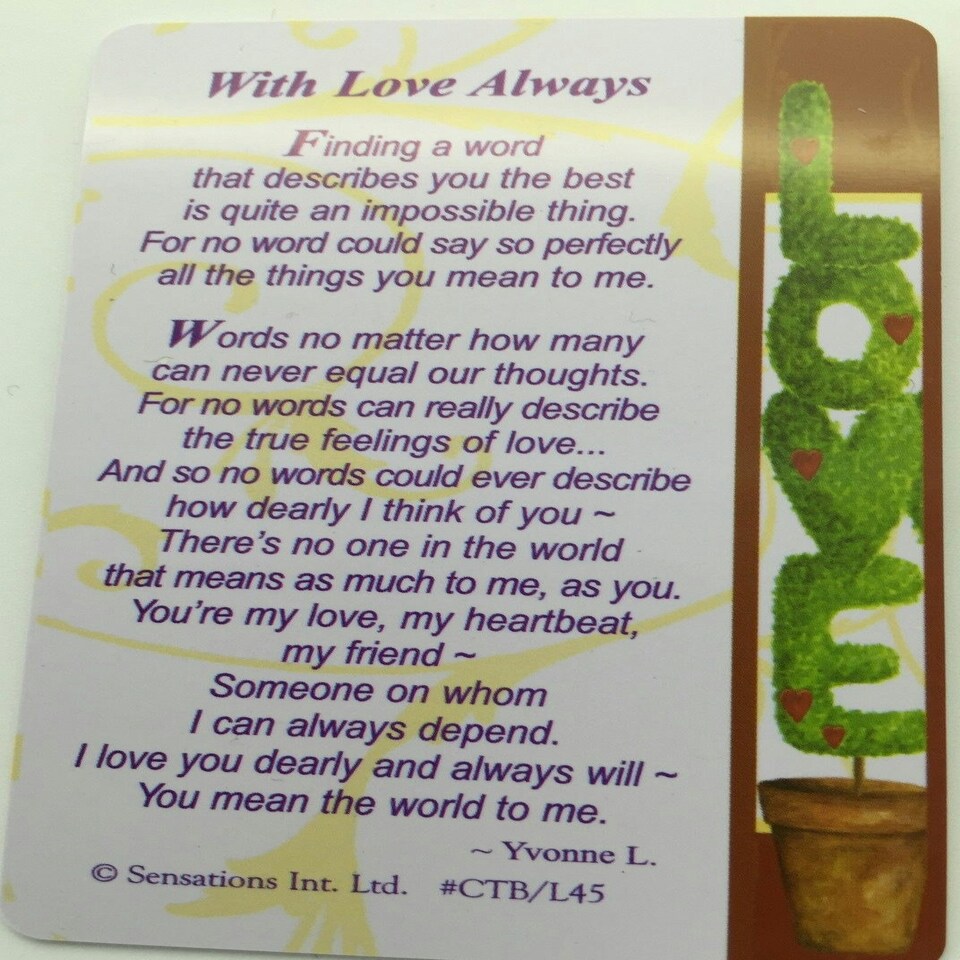 With Love Always
Finding a word
that describes you the best
is quite an impossible thing.
For no word could say so perfectly
all the things you mean to me.
Words no matter how many
can never equal our thoughts.
For no words can really describe
the true feelings of love...
And so no words could ever describe
how dearly I think of you ~
There's no one in the world
that means as much to me, as you.
You're my love, my heartbeat,
my friend ~
Someone on whom
I can always depend.
I love you dearly and always will ~
You mean the world to me.
~ Yvonne L.
© Sensations Int. Ltd. #CTB/L45
LOVE